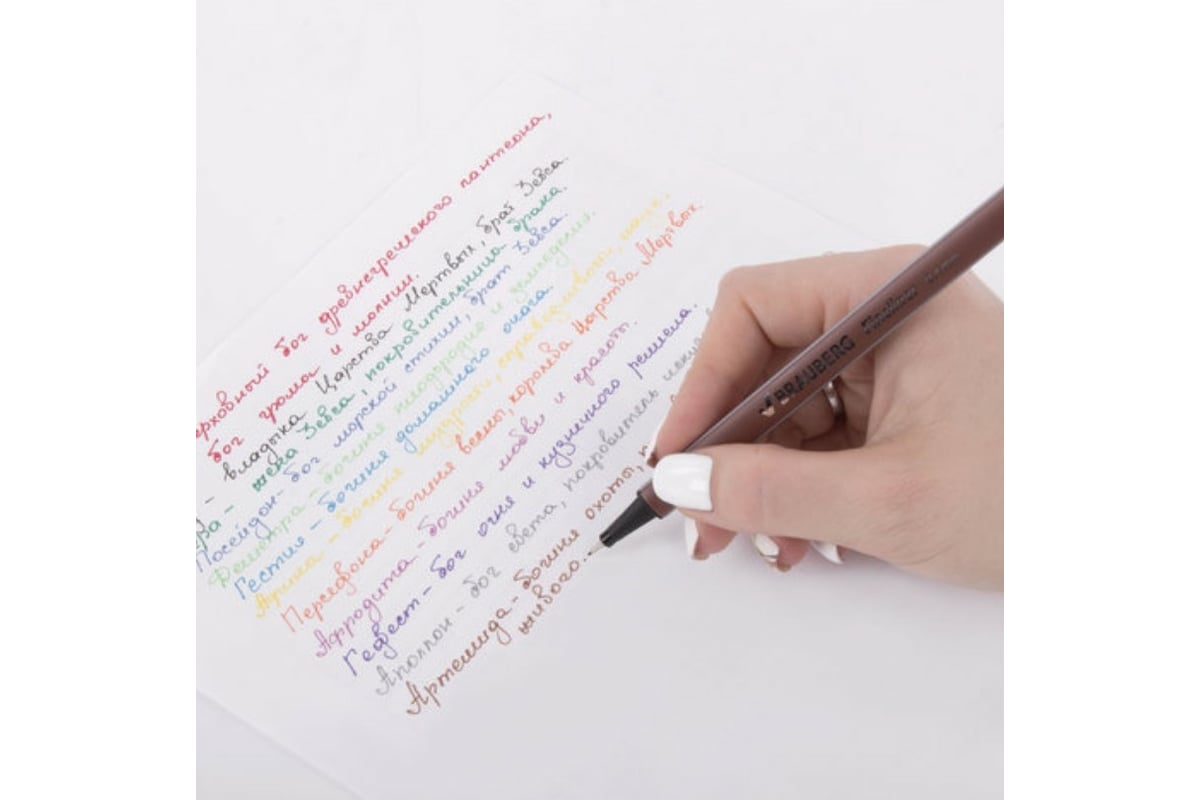 ерховный бог древнегреческого пантеона,
бог грома и молнии.
владыка Царства Мертвых, брат Зевса.
ра - жена Зевса, покровительница брака.
Посейдон - бог морской стихии, брат Зевса.
Деметра - богиня плодородия и земледелия.
Гестия - богиня домашнего очага.
Афина - богиня мудрости, справедливости, наук.
Персефона - богиня весны, королева Царства Мертвых.
Афродита - богиня любви и красот.
Гефест - бог огня и кузнечного ремесла.
Аполлон - бог света, покровитель искус
Артемида - богиня охоты,
живого.
BRAUBERG Fineliner